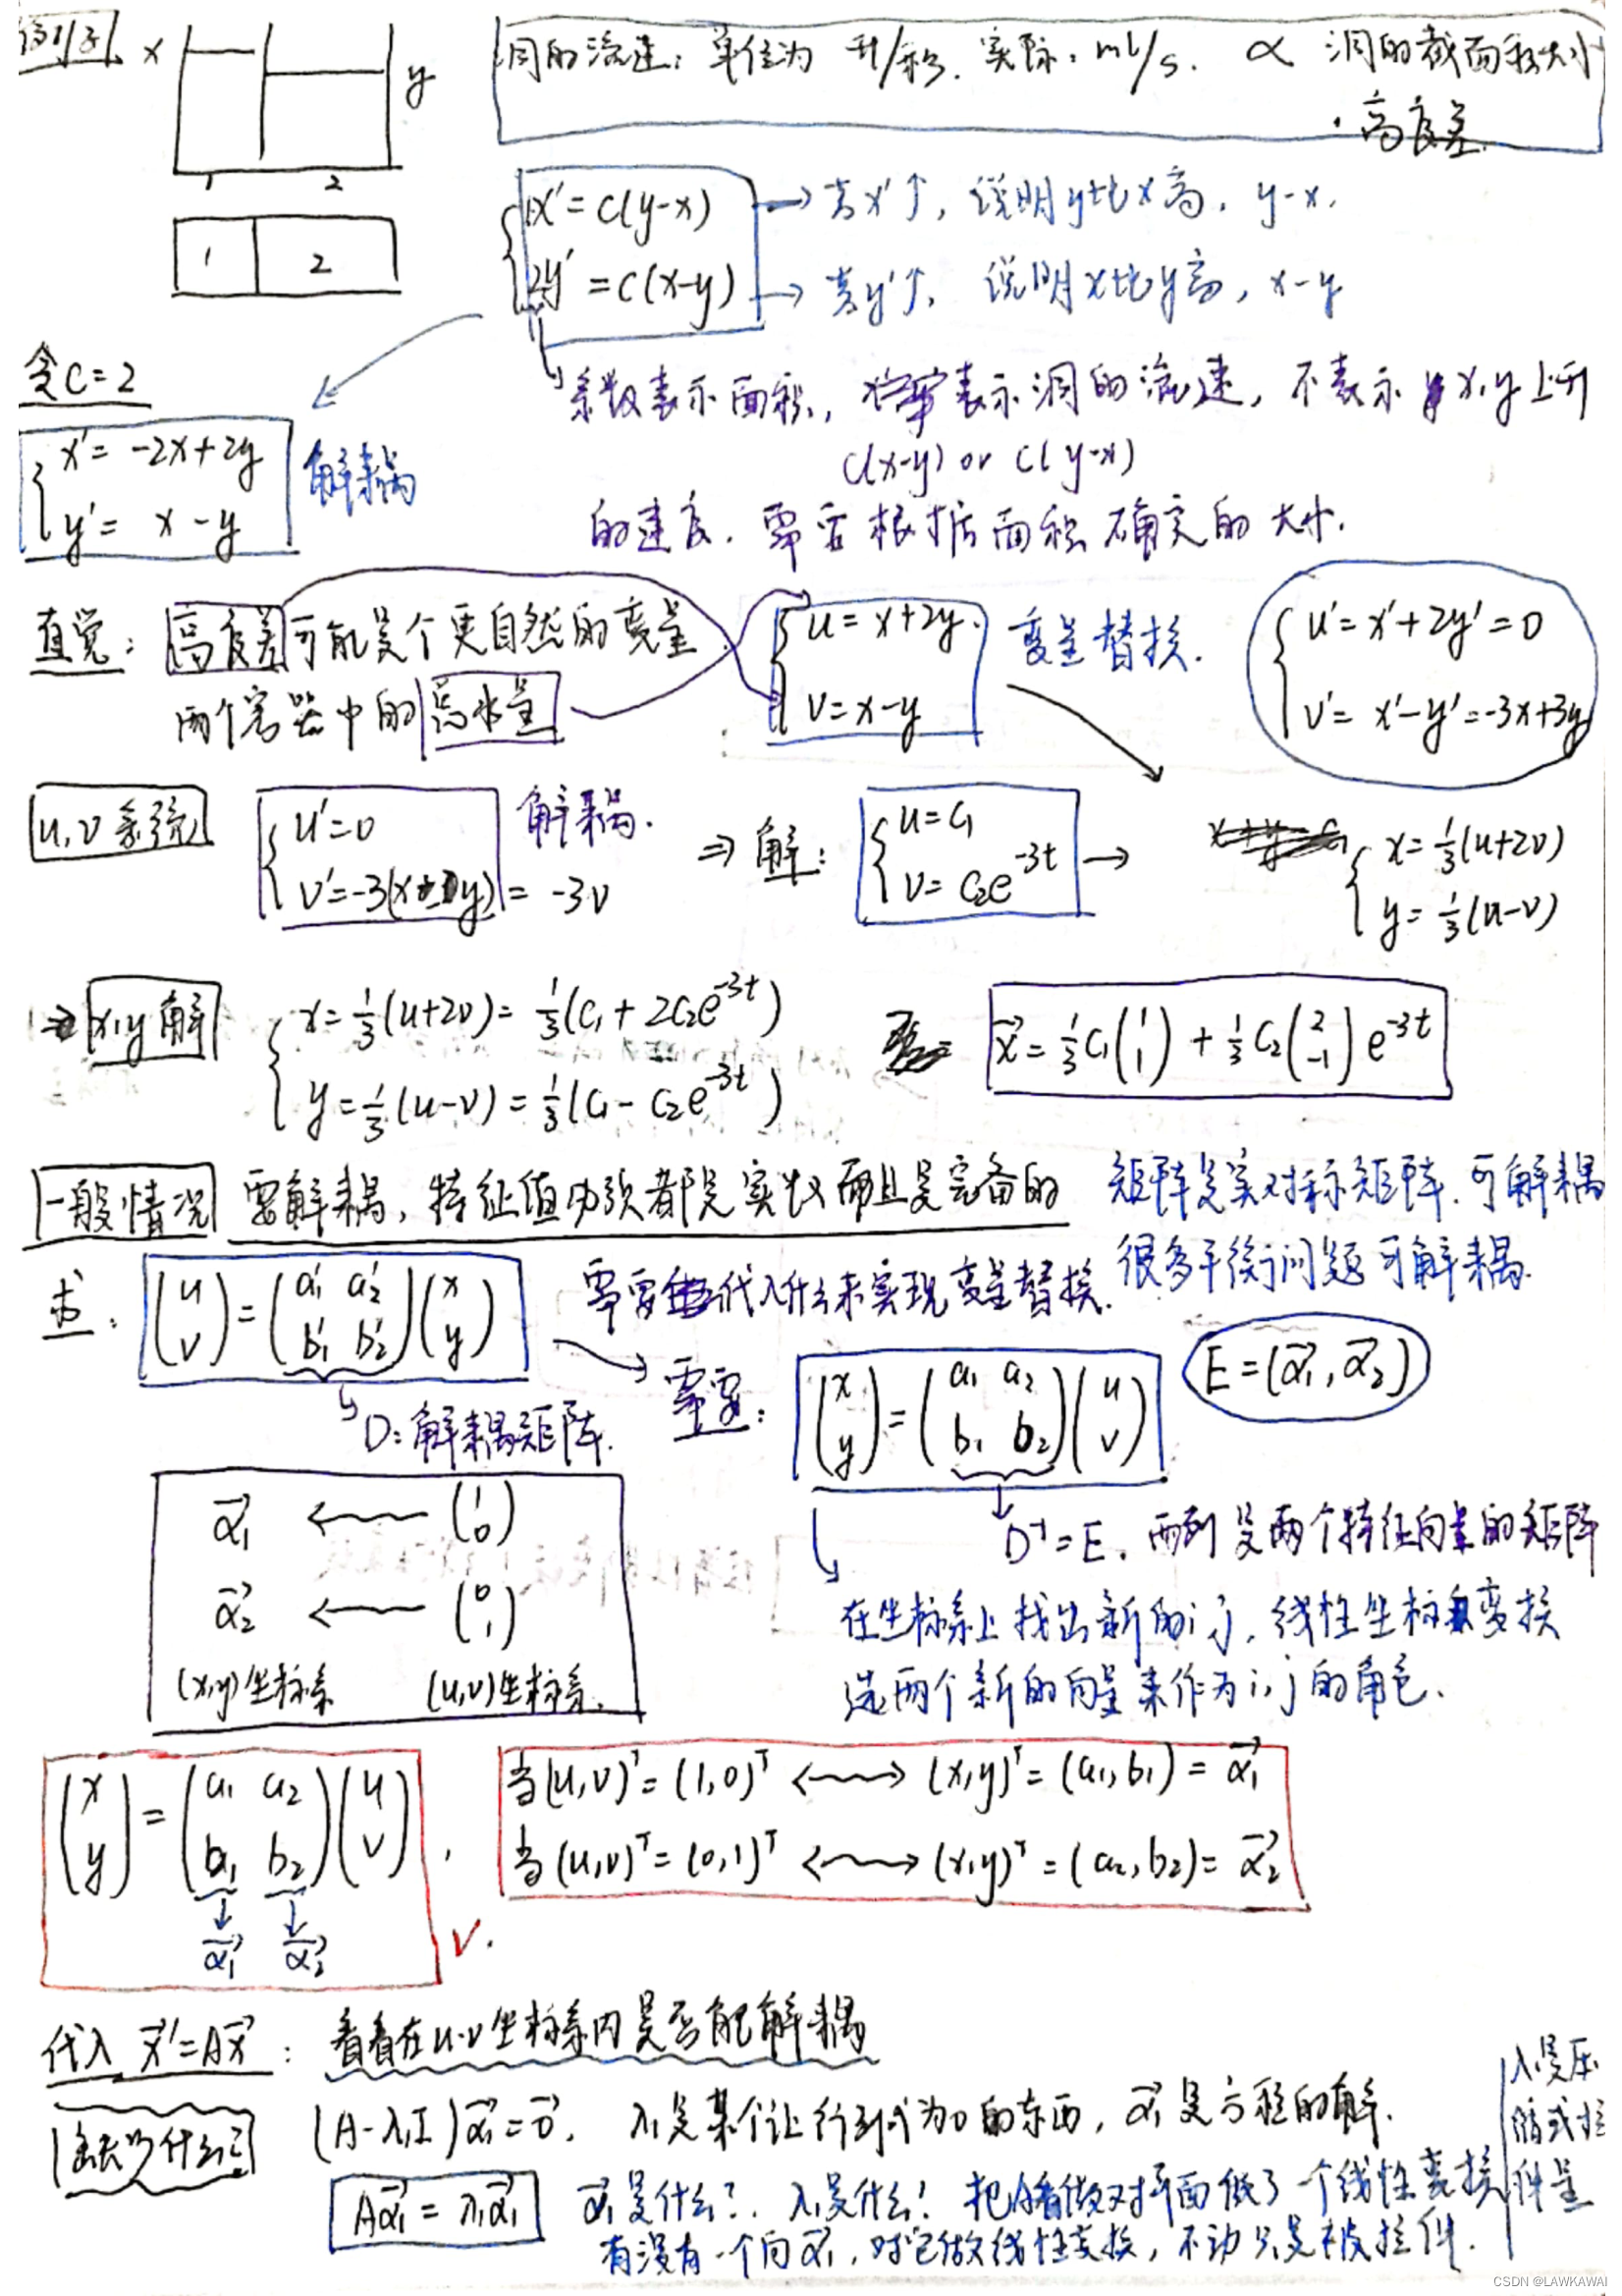 例子 x y
1 2
1 2
洞的流速：单位为 升/秒. 实际：ml/s. ∝ 洞的截面积大小
· 高度差.
{ 1x' = c(y-x) → 若x'↑, 说明y比x高, y-x.
2y' = c(x-y) → 若y'↑, 说明x比y高, x-y
令C=2
系数表示面积, 表示洞的流速, 不表示 x,y上升
c(x-y) or c(y-x)
的速度. 需要根据面积确定的大小.
{ x' = -2x+2y
y' = x-y
解耦
直觉: 高度差可能是个更自然的变量
两个容器中的总水量
{ u = x+2y.
v = x-y
变量替换.
{ u' = x'+2y' = 0
v' = x'-y' = -3x+3y
u,v系统
{ u'=0
v'=-3(x-y) = -3v
解耦.
⇒ 解: { u = c₁
v = c₂e^{-3t} →
{ x = 1/3(u+2v)
y = 1/3(u-v)
⇒ x,y解 { x = 1/3(u+2v) = 1/3(c₁+2c₂e^{-3t})
y = 1/3(u-v) = 1/3(c₁-c₂e^{-3t})
x⃗ = 1/3 c₁ (1 1) + 1/3 c₂ (2 -1) e^{-3t}
一般情况 要解耦, 特征值必须都是实数而且是完备的
矩阵是实对称矩阵. 可解耦
很多平衡问题可解耦.
求: (u v) = (a₁' a₂' b₁' b₂')(x y)
需要代入什么来实现变量替换.
D: 解耦矩阵.
需要: (x y) = (a₁ a₂ b₁ b₂)(u v)
E = (α⃗₁, α⃗₂)
D⁻¹ = E. 两列是两个特征向量的矩阵
α⃗₁ ← (1 0)
α⃗₂ ← (0 1)
(x,y)坐标系 (u,v)坐标系.
在坐标系上找出新的i,j, 线性坐标变换
选两个新的向量来作为i,j的角色.
(x y) = (a₁ a₂ b₁ b₂)(u v),
α⃗₁ α⃗₂
√.
当(u,v)ᵀ = (1,0)ᵀ ↔ (x,y)ᵀ = (a₁,b₁) = α⃗₁
当(u,v)ᵀ = (0,1)ᵀ ↔ (x,y)ᵀ = (a₂,b₂) = α⃗₂
代入 x⃗' = Ax⃗ : 看看在u-v坐标系内是否能解耦
缺少什么?
(A-λ₁I)α⃗₁ = 0⃗. λ₁是某个让行列式为0的东西, α⃗₁是方程的解.
Aα⃗₁ = λ₁α⃗₁
α⃗₁是什么?. λ₁是什么! 把A看做对平面做了一个线性变换
有没有一个向α⃗₁, 对它做线性变换, 不动只是被拉伸.
λ₁是压
缩或拉
伸量
CSDN @LAWKAWAI